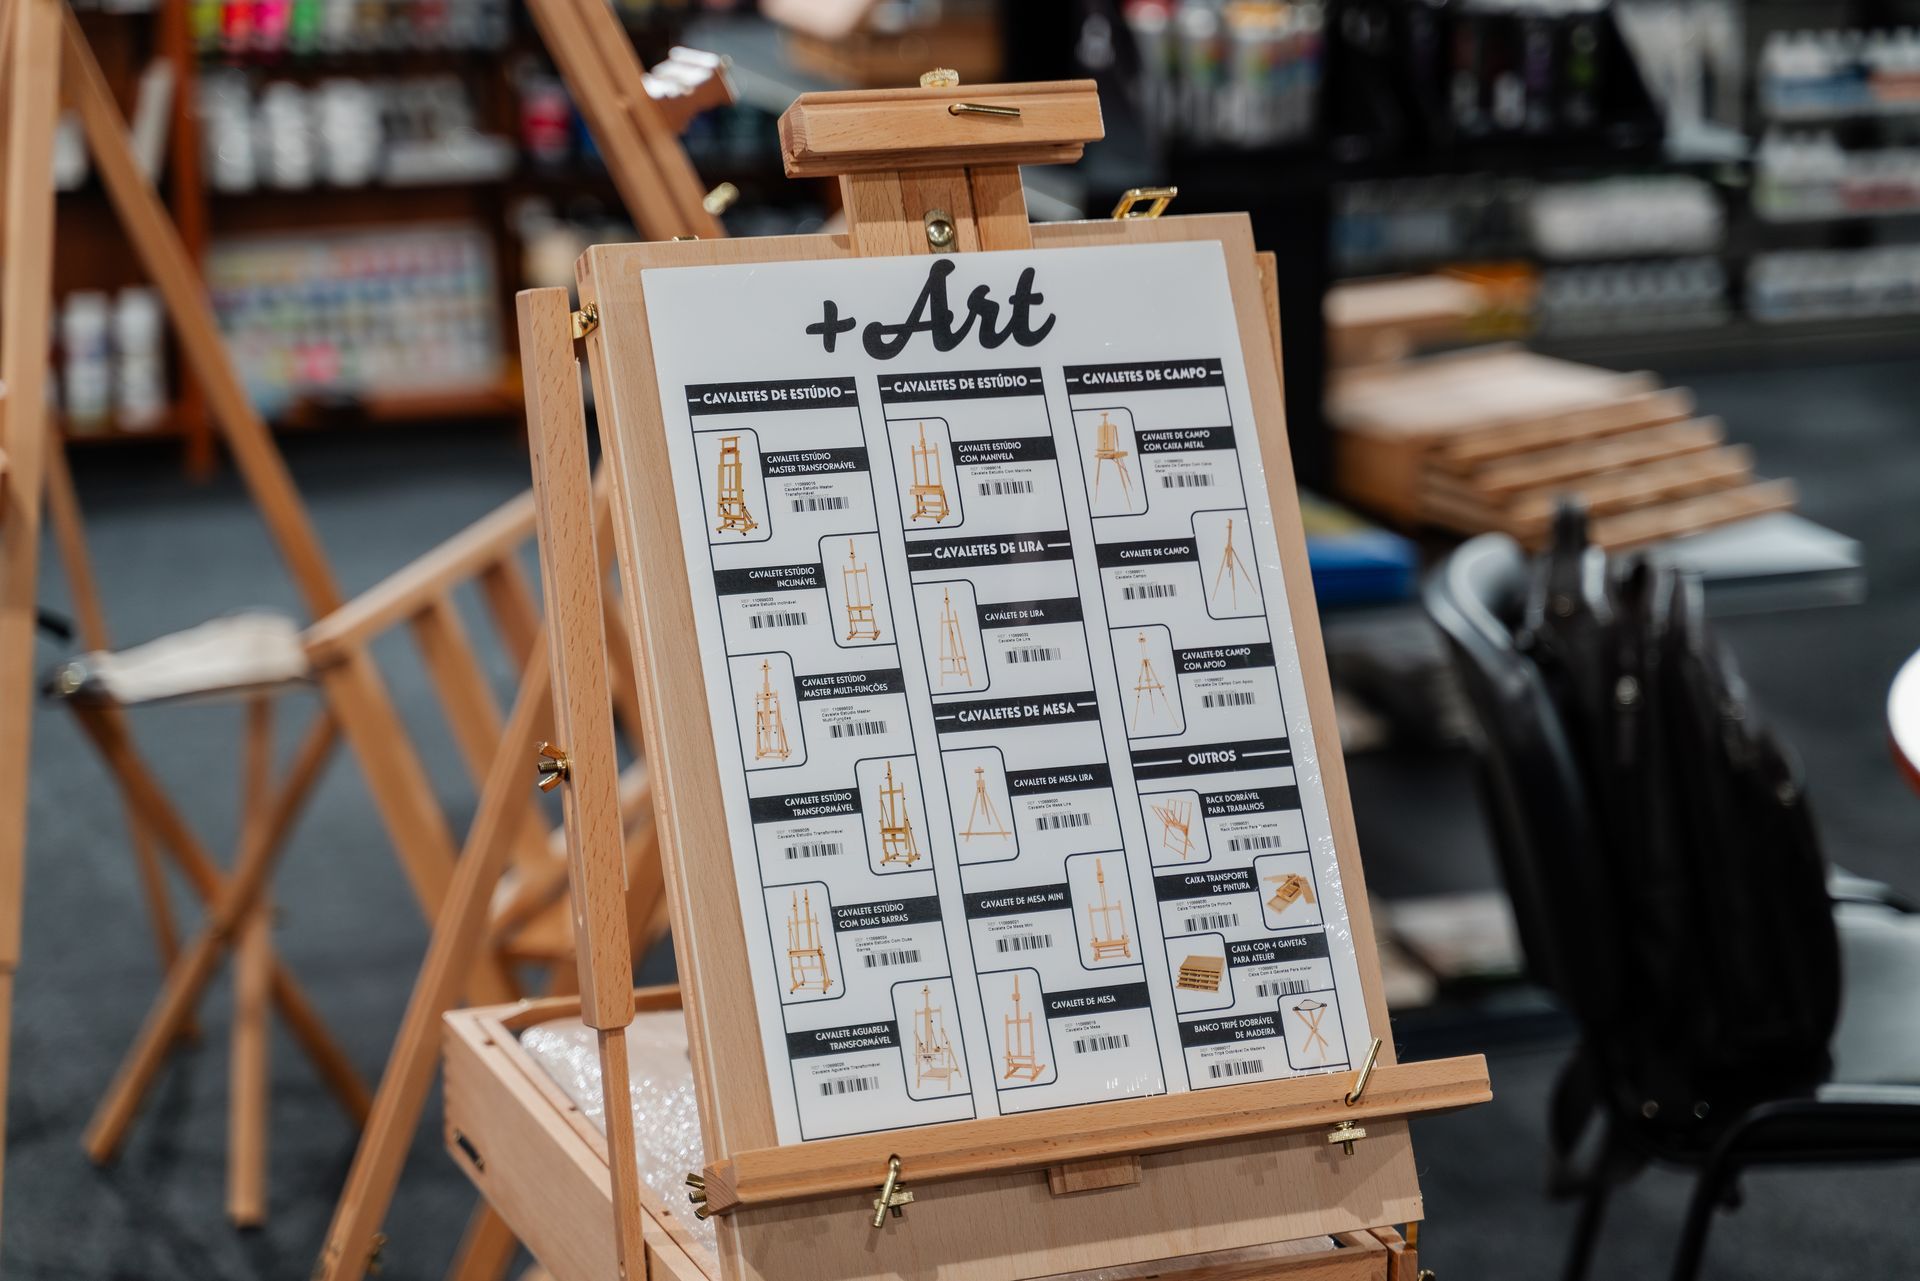 +Art
CAVALETES DE ESTÚDIO
CAVALETE ESTÚDIO
MASTER TRANSFORMÁVEL
Cavalete Estúdio Master
Transformável
CAVALETE ESTÚDIO
INCLINÁVEL
Cavalete Estúdio Inclinável
CAVALETE ESTÚDIO
MASTER MULTI-FUNÇÕES
Cavalete Estúdio Master
Multi-Funções
CAVALETE ESTÚDIO
TRANSFORMÁVEL
Cavalete Estúdio Transformável
CAVALETE ESTÚDIO
COM DUAS BARRAS
Cavalete Estúdio Com Duas
Barras
CAVALETE AGUARELA
TRANSFORMÁVEL
Cavalete Aguarela Transformável
CAVALETES DE ESTÚDIO
CAVALETE ESTÚDIO
COM MANIVELA
Cavalete Estúdio Com Manivela
CAVALETES DE LIRA
CAVALETE DE LIRA
Cavalete De Lira
CAVALETES DE MESA
CAVALETE DE MESA LIRA
Cavalete De Mesa Lira
CAVALETE DE MESA MINI
Cavalete De Mesa Mini
CAVALETE DE MESA
Cavalete De Mesa
CAVALETES DE CAMPO
CAVALETE DE CAMPO
COM CAIXA METAL
Cavalete De Campo Com Caixa
Metal
CAVALETE DE CAMPO
Cavalete Campo
CAVALETE DE CAMPO
COM APOIO
Cavalete De Campo Com Apoio
OUTROS
RACK DOBRÁVEL
PARA TRABALHOS
Rack Dobrável Para Trabalhos
CAIXA TRANSPORTE
DE PINTURA
Caixa Transporte De Pintura
CAIXA COM 4 GAVETAS
PARA ATELIER
Caixa Com 4 Gavetas Para Atelier
BANCO TRIPÉ DOBRÁVEL
DE MADEIRA
Banco Tripé Dobrável De Madeira